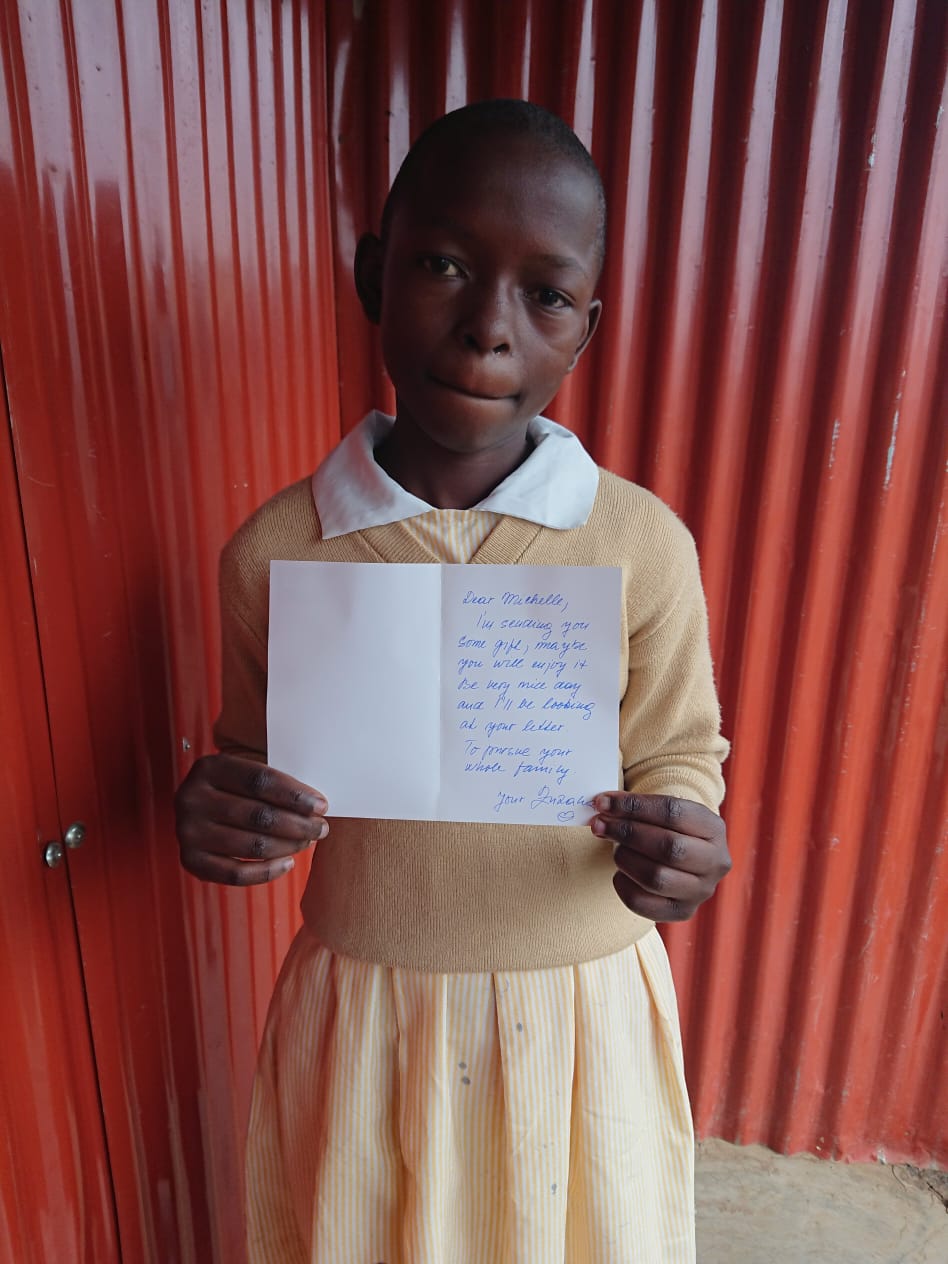 Dear Michelle,
I'm sending you
some gift, maybe
you will enjoy it
Be very nice day
and I'll be looking
at your letter.
To pursue your
whole family.
Your